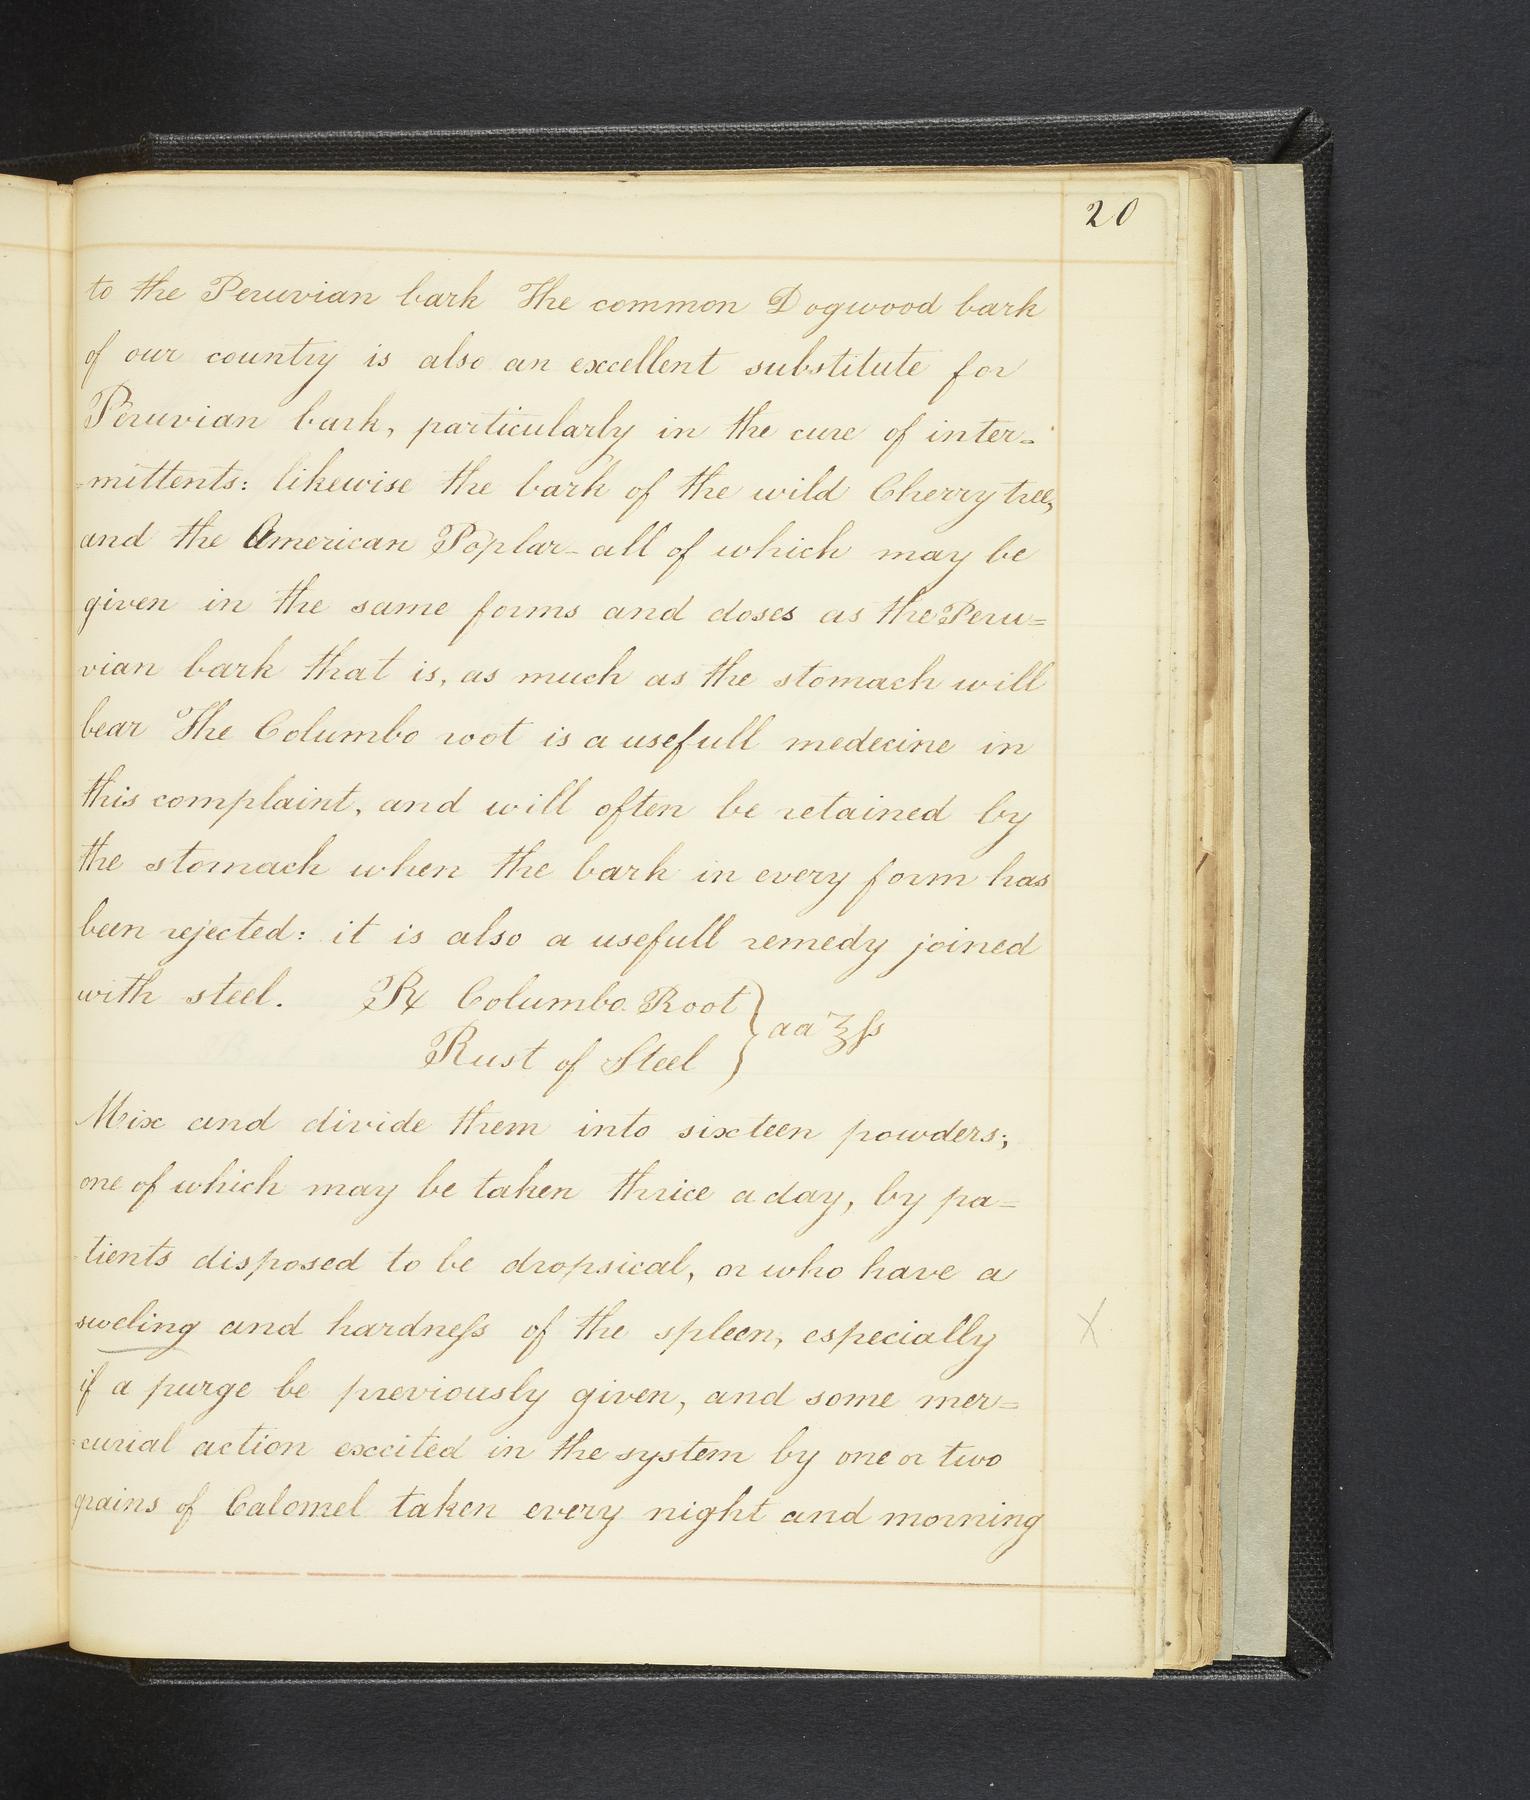 20
to the Peruvian bark The common Dogwood bark
of our country is also an excellent substitute for
Peruvian bark, particularly in the cure of inter=
=mittents: likewise the bark of the wild Cherry tree,
and the American Poplar - all of which may be
given in the same forms and doses as the Peru=
vian bark that is, as much as the stomach will
bear The Columbo root is a usefull medecine in
this complaint, and will often be retained by
the stomach when the bark in every form has
been rejected: it is also a usefull remedy joined
with steel. ℞ Columbo Root } aa ʒſs
Rust of Steel
Mix and divide them into sixteen powders;
one of which may be taken thrice a day, by pa=
=tients disposed to be dropsical, or who have a
sweling and hardneſs of the spleen, especially X
if a purge be previously given, and some mer=
=curial action excited in the system by one or two
grains of Calomel taken every night and morning